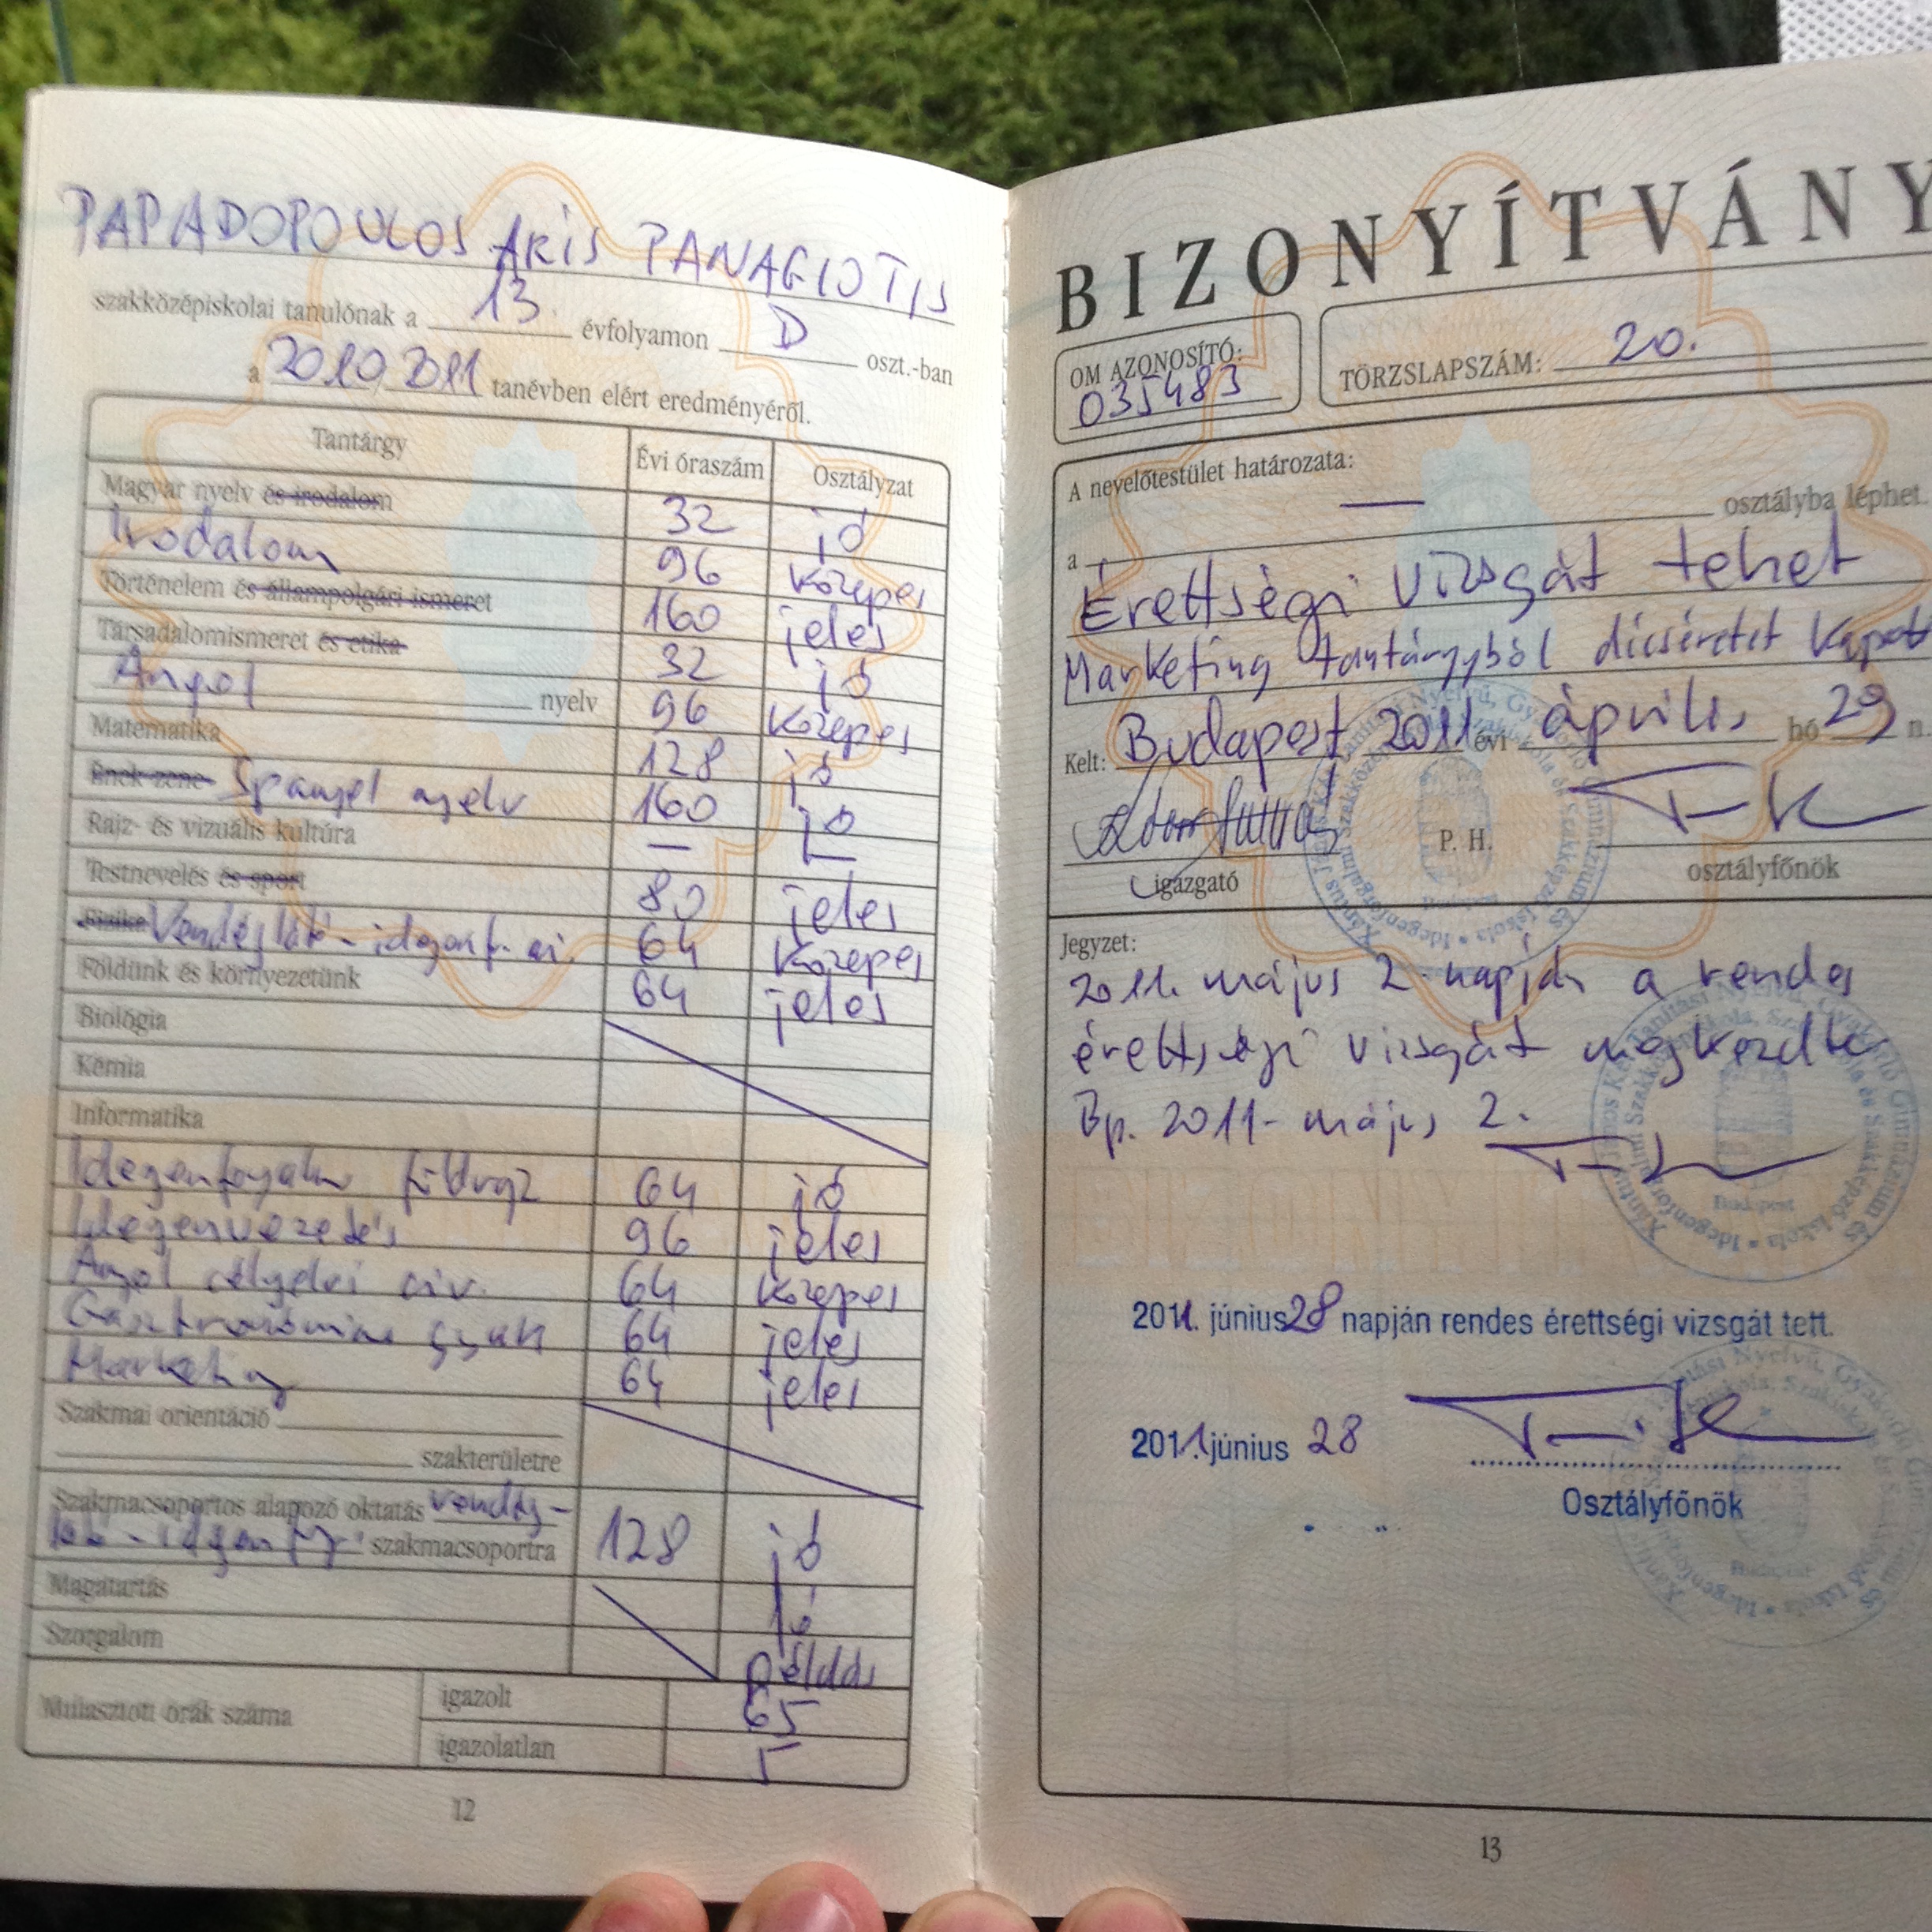 PAPADOPOULOS AKIS PANAGIOTIS
szakközépiskolai tanulónak a 13. évfolyamon D oszt.-ban
a 2010/2011 tanévben elért eredményéről.
Tantárgy Évi óraszám Osztályzat
Magyar nyelv és irodalom 32 jó
Irodalom 96 közepes
Történelem és állampolgári ismeret 160 jeles
Társadalomismeret és etika 32 jó
Angol nyelv 96 közepes
Matematika 128 jó
Ének-zene Spanyol nyelv 160 jó
Rajz- és vizuális kultúra — —
Testnevelés és sport 80 jeles
Fizika Vendéglátó-idegenf. 64 közepes
Földünk és környezetünk 64 jeles
Biológia
Kémia
Informatika
Idegenforgalmi földrajz 64 jó
Idegenvezetés 96 jeles
Angol célnyelvi civ. 64 közepes
Gasztronómia gyak 64 jeles
Marketing 64 jeles
Szakmai orientáció
szakterületre
Szakmacsoportos alapozó oktatás vendég-
látó-idegenf. szakmacsoportra 128 jó
Magatartás jó
Szorgalom példás
Mulasztott órák száma igazolt 65
igazolatlan 5
12
BIZONYÍTVÁNY
OM AZONOSÍTÓ: 035483
TÖRZSLAPSZÁM: 20.
A nevelőtestület határozata:
a — osztályba léphet.
Érettségi vizsgát tehet
Marketing tantárgyból dícséretet kapott
Kelt: Budapest 2011 évi április hó 29 n.
P. H.
igazgató osztályfőnök
Jegyzet:
2011. május 2 napján a rendes
érettségi vizsgát megkezdte
Bp. 2011. május 2.
2011. június 28 napján rendes érettségi vizsgát tett.
2011. június 28
Osztályfőnök
13